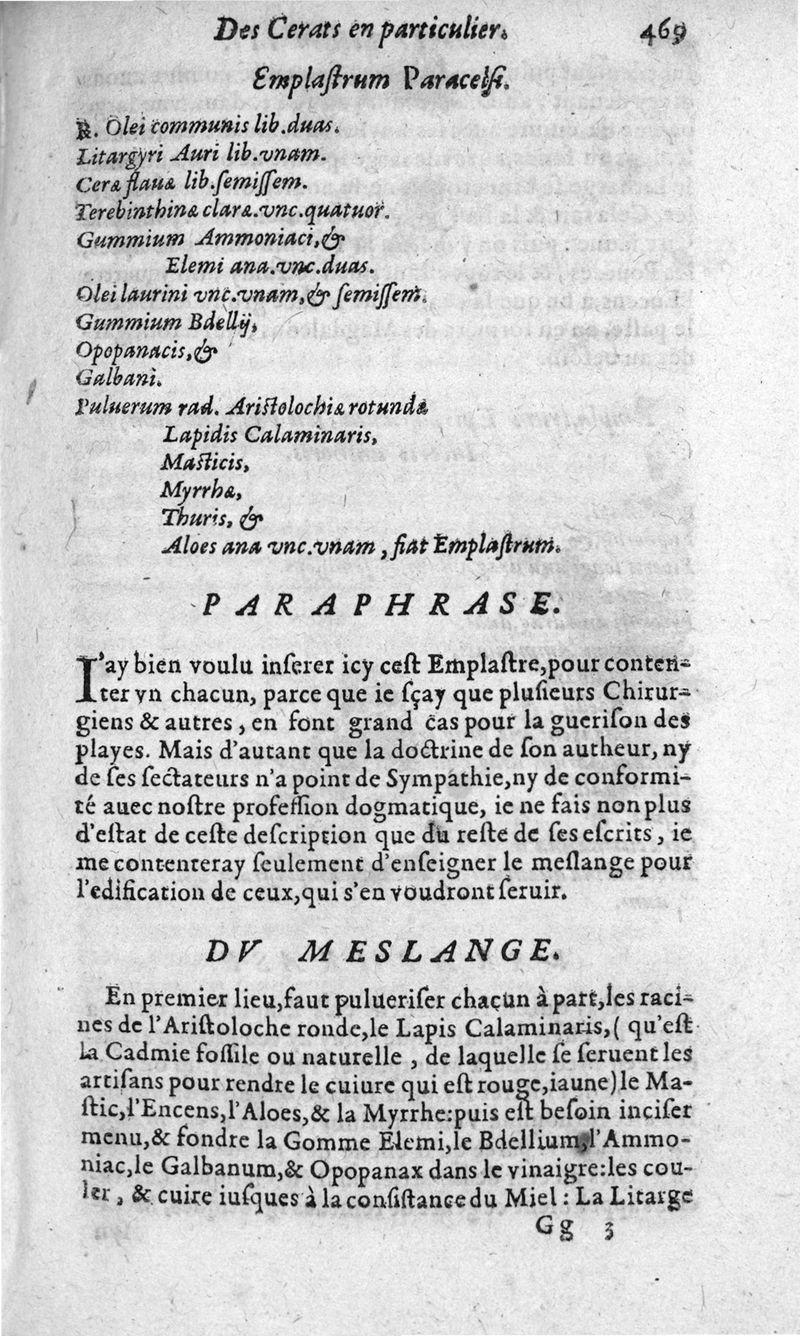 Des Cerats en particulier. 469
Emplaſtrum Paracelſi.
℞. Olei communis lib.duas.
Litargyri Auri lib.vnam.
Ceræ flauæ lib.ſemiſſem.
Terebinthinæ claræ.vnc.quatuor.
Gummium Ammoniaci,&
Elemi ana.vnc.duas.
Olei laurini vnc.vnam,& ſemiſſem.
Gummium Bdellij,
Opopanacis,&
Galbani.
Puluerum rad. Ariſtolochiæ rotundæ
Lapidis Calaminaris,
Maſticis,
Myrrhæ,
Thuris, &
Aloes ana vnc.vnam, fiat Emplaſtrum.
PARAPHRASE.
I'ay bien voulu inſerer icy ceſt Emplaſtre,pour conten-
ter vn chacun, parce que ie ſçay que pluſieurs Chirur-
giens & autres, en font grand cas pour la gueriſon des
playes. Mais d'autant que la doctrine de ſon autheur, ny
de ſes ſectateurs n'a point de Sympathie,ny de conformi-
té auec noſtre profeſſion dogmatique, ie ne fais non plus
d'eſtat de ceſte deſcription que du reſte de ſes eſcrits, ie
me contenteray ſeulement d'enſeigner le meſlange pour
l'edification de ceux,qui s'en voudront ſeruir.
DV MESLANGE.
En premier lieu,faut pulueriſer chacun à part,les raci-
nes de l'Ariſtoloche ronde,le Lapis Calaminaris,( qu'eſt
la Cadmie foſſile ou naturelle, de laquelle ſe ſeruent les
artiſans pour rendre le cuiure qui eſt rouge,iaune)le Ma-
ſtic,l'Encens,l'Aloes,& la Myrrhe:puis eſt beſoin inciſer
menu,& fondre la Gomme Elemi,le Bdellium,l'Ammo-
niac,le Galbanum,& Opopanax dans le vinaigre:les cou-
ler, & cuire iuſques à la conſiſtance du Miel : La Litarge
Gg 3